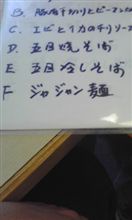 B. 豚肉千切りとピーマン
C. エビとイカのチリソー
D. 五目焼そば
E 五目冷しそば
F ジャジャン麺